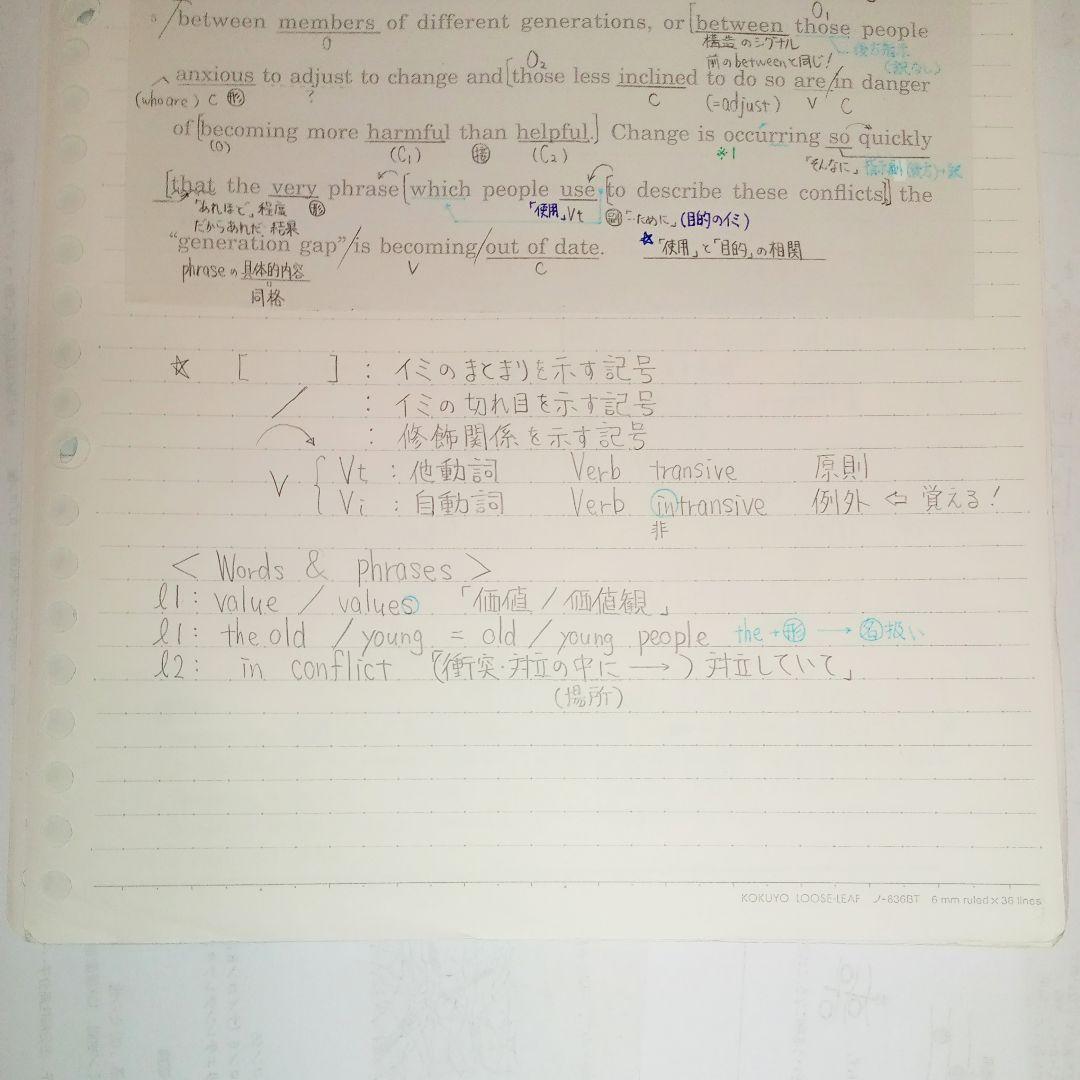 5 between members of different generations, or [between those people
O
O1
構造のシグナル
前のbetweenと同じ!
後方指示
(訳なし)
O2
anxious to adjust to change and [those less inclined to do so are/in danger
(who are) C 形
?
C
(=adjust)
V
C
of [becoming more harmful than helpful.] Change is occurring so quickly
(O)
(C1)
接
(C2)
※1
「そんなに」
[that the very phrase [which people use [to describe these conflicts]] the
「あれほど」程度
だからあれだ 結果
形
「使用」Vt
副「〜ために」(目的のイミ)
"generation gap"/is becoming/out of date.
V
C
☆「使用」と「目的」の相関
phraseの具体的内容
同格
☆ [ ] : イミのまとまりを示す記号
/ : イミの切れ目を示す記号
: 修飾関係を示す記号
V { Vt : 他動詞 Verb transive 原則
Vi : 自動詞 Verb intransive 例外 ⇐ 覚える!
非
< Words & phrases >
l1: value / values 「価値 / 価値観」
l1: the old / young = old / young people the + 形 → 名扱い
l2: in conflict 「(衝突・対立の中に →) 対立していて」
(場所)
KOKUYO LOOSE-LEAF ノ-836BT 6 mm ruled × 36 lines